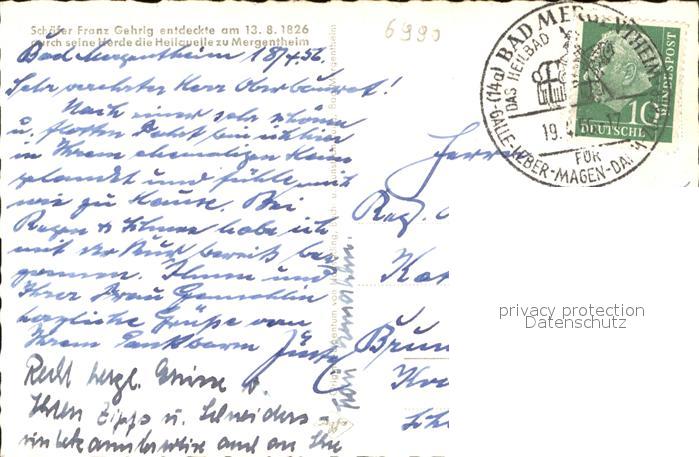 Schäfer Franz Gehrig entdeckte am 13. 8. 1826
durch seine Herde die Heilquelle zu Mergentheim
6990
Bad Mergentheim 18/4.56.
Sehr verehrter Herr Oberbaurat!
Nach einer sehr schönen
u. flotten Fahrt bin ich hier
in Ihrem ehemaligen Haus
gelandet und fühle mich
wie zu Hause. Bei
Regen & Schnee habe ich
mit der Kur bereits be-
gonnen. Ihnen und
Ihrer Frau Gemahlin
herzliche Grüße von
Ihrem dankbaren
Recht herzl. Grüsse v.
Ihren Zipps u. Schneiders
unbekannterweise auch an Ihre
Frau Gemahlin
Herrn
Reg.
BAD MERGENTHEIM
(14a)
DAS HEILBAD
19.4.
FÜR
GALLE-LEBER-MAGEN-DARM
10
DEUTSCHE
BUNDESPOST
privacy protection
Datenschutz